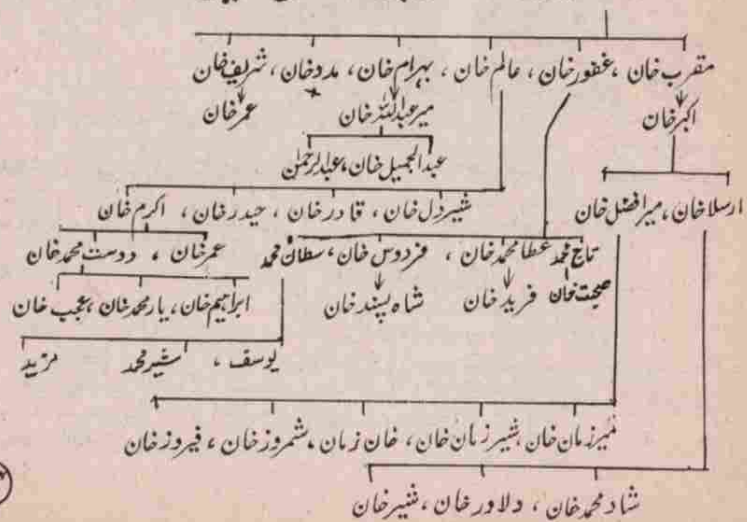 مقرب خان ، غفور خان ، عالم خان ، بہرام خان ، مدد خان ، شریف خان
اکبر خان
میر عبداللہ خان
عمر خان
عبدالجمیل خان ، عبدالرحمٰن
ارسلا خان ، میر افضل خان
شیردل خان ، قادر خان ، حیدر خان ، اکرم خان
تاج محمد عطا محمد خان ، فردوس خان ، سطان محمد
عمر خان ، دوست محمد خان
صحبت خان فرید خان شاہ پسند خان
ابراہیم خان ، یار محمد خان ، عجب خان
یوسف ، شیر محمد مزید
شیرزمان خان ، خان زمان ، شمروز خان ، فیروز خان
شاد محمد خان ، دلاور خان